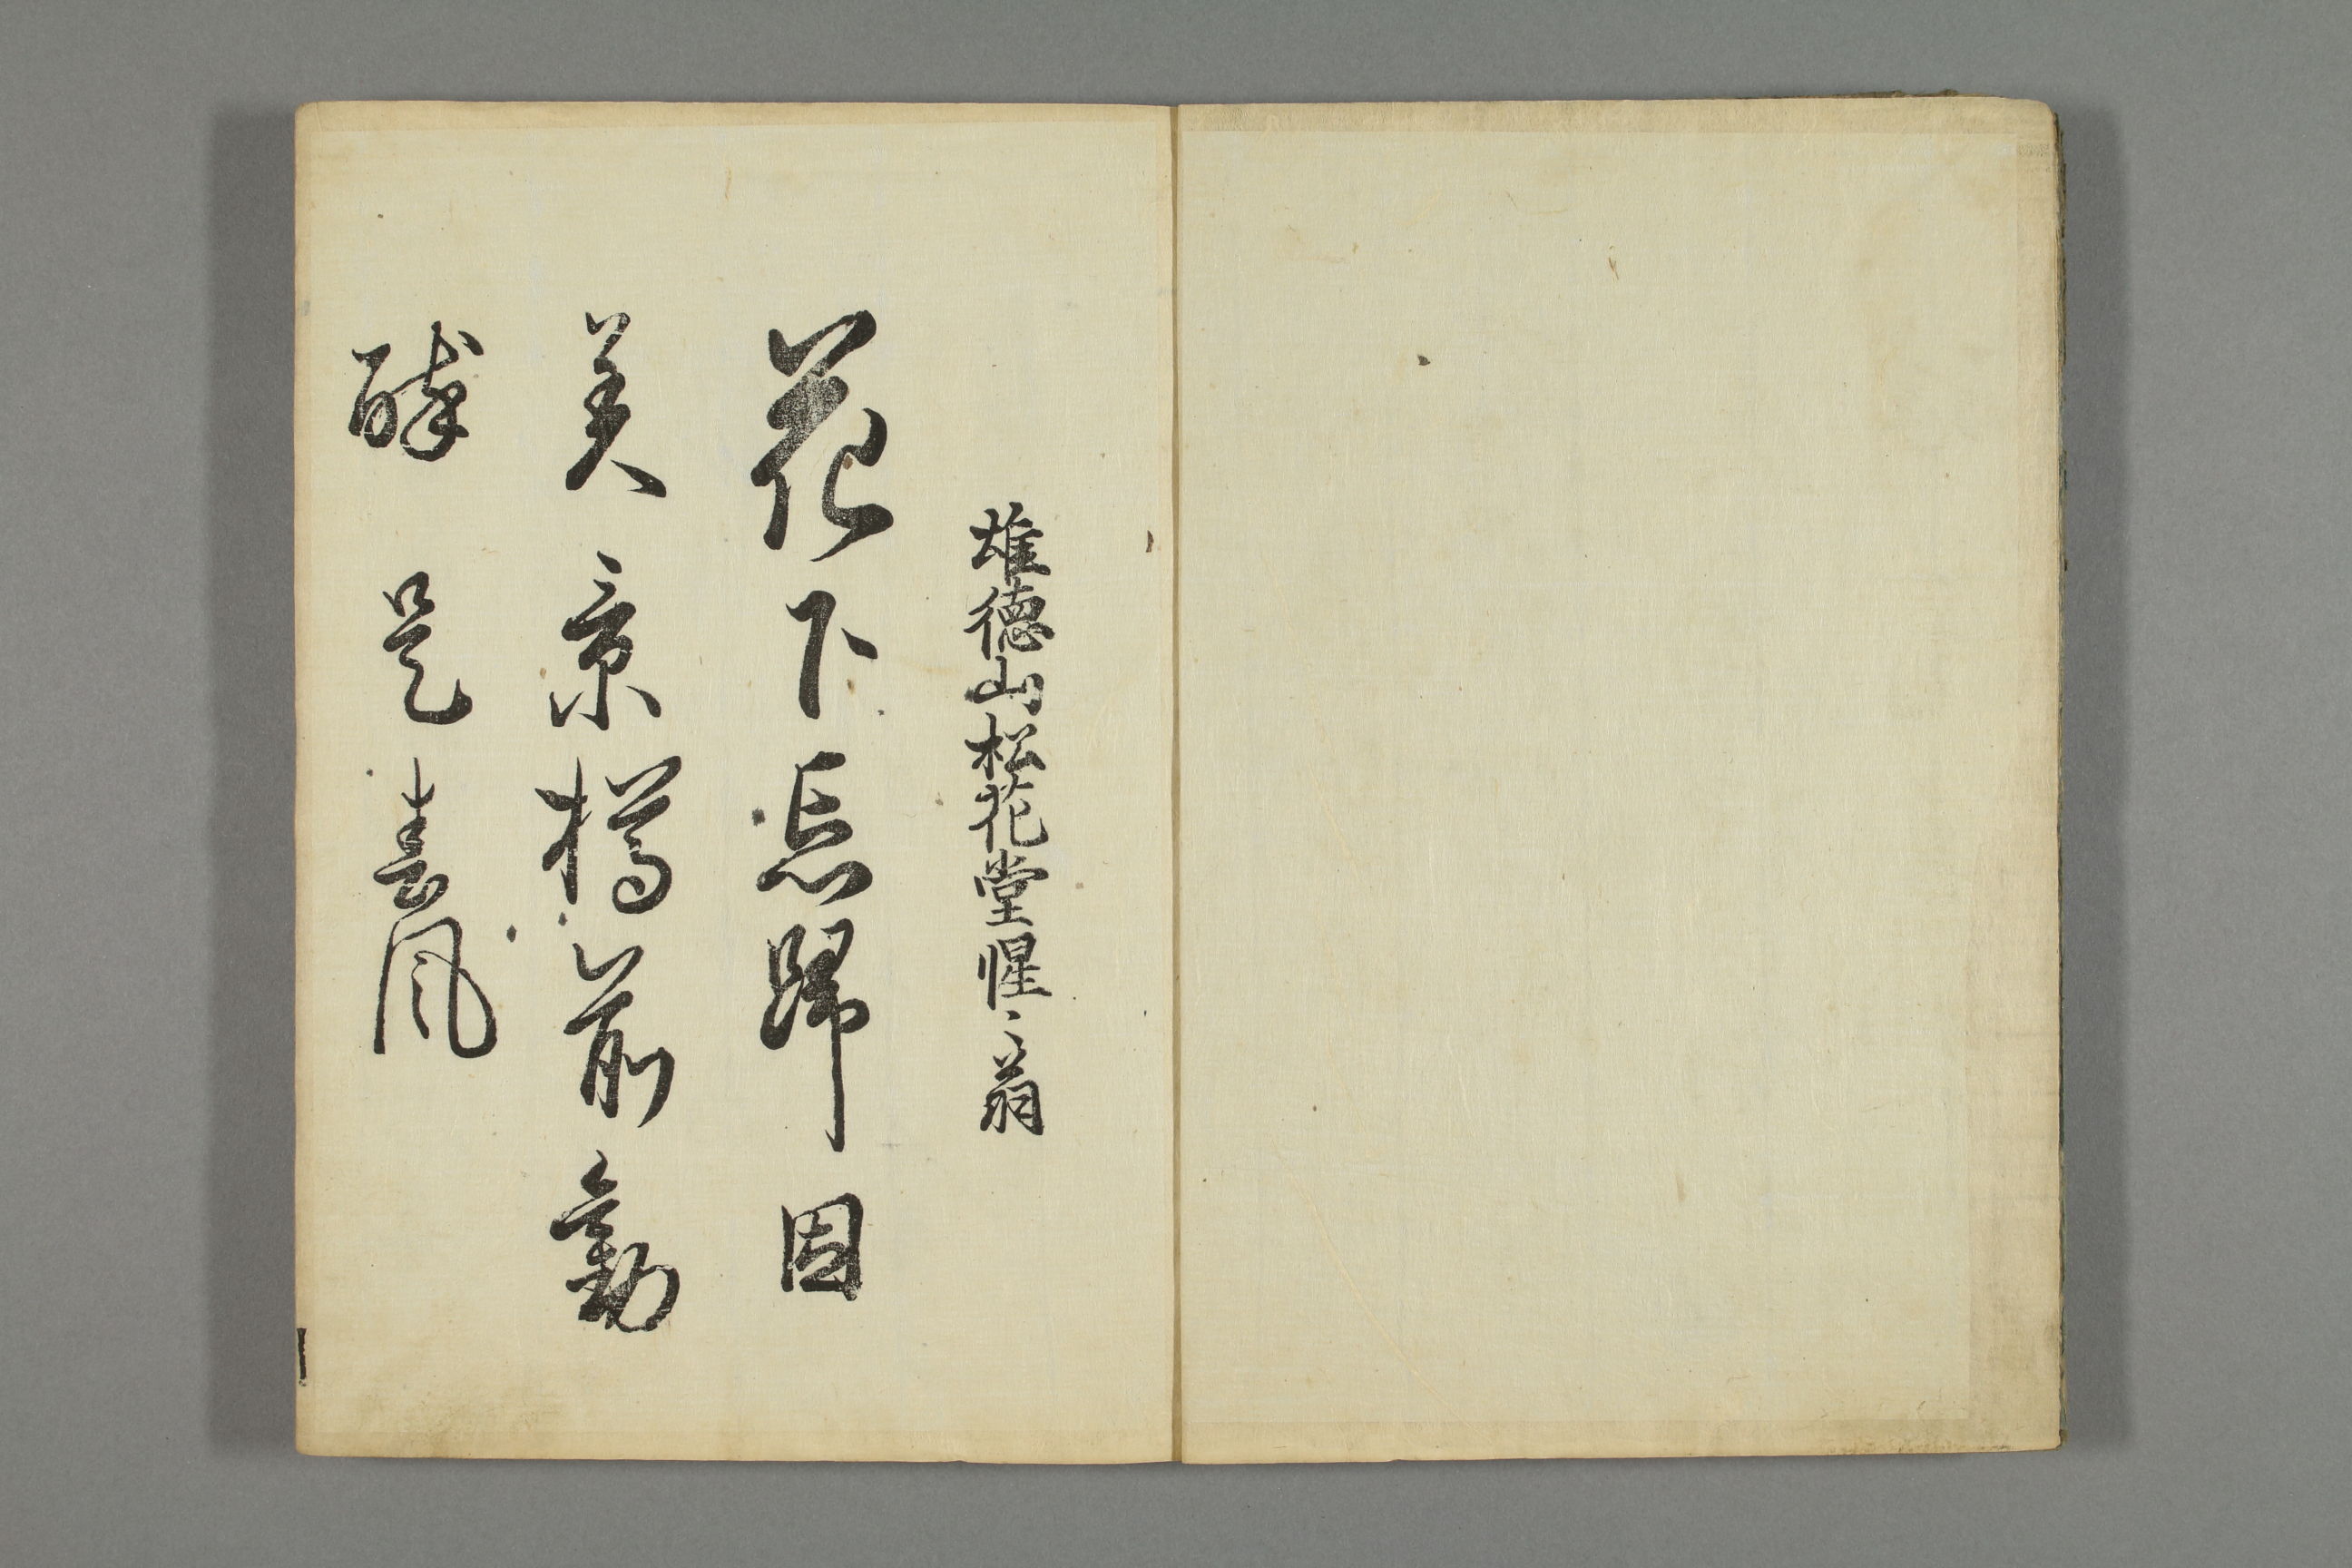 雄徳山松花堂惺〻翁
花下忘歸因
美景樽前勸
酔是春風